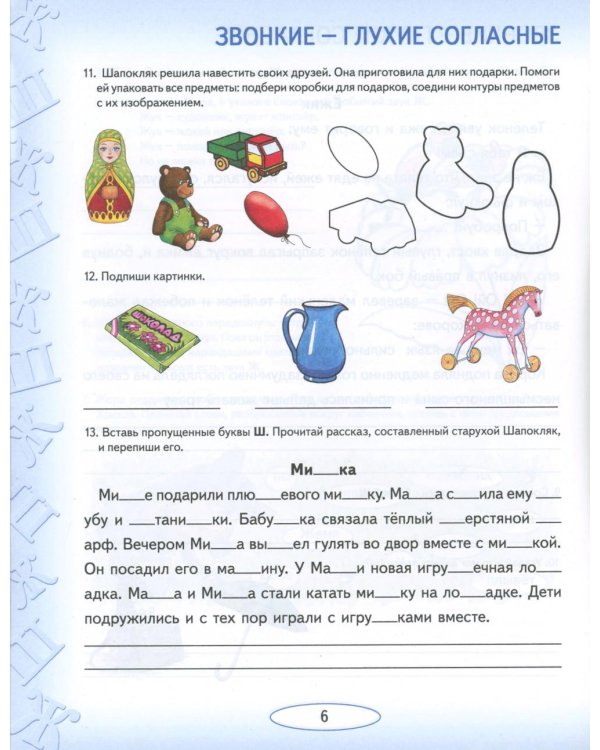 ЗВОНКИЕ – ГЛУХИЕ СОГЛАСНЫЕ
11. Шапокляк решила навестить своих друзей. Она приготовила для них подарки. Помоги
ей упаковать все предметы: подбери коробки для подарков, соедини контуры предметов
с их изображением.
12. Подпиши картинки.
ШОКОЛАД
13. Вставь пропущенные буквы Ш. Прочитай рассказ, составленный старухой Шапокляк,
и перепиши его.
Ми___ка
Ми___е подарили плю___евого ми___ку. Ма___а с___ила ему ___
убу и ___тани___ки. Бабу___ка связала тёплый ___ерстяной ___
арф. Вечером Ми___а вы___ел гулять во двор вместе с ми___кой.
Он посадил его в ма___ину. У Ма___и новая игру___ечная ло___
адка. Ма___а и Ми___а стали катать ми___ку на ло___адке. Дети
подружились и с тех пор играли с игру___ками вместе.
6